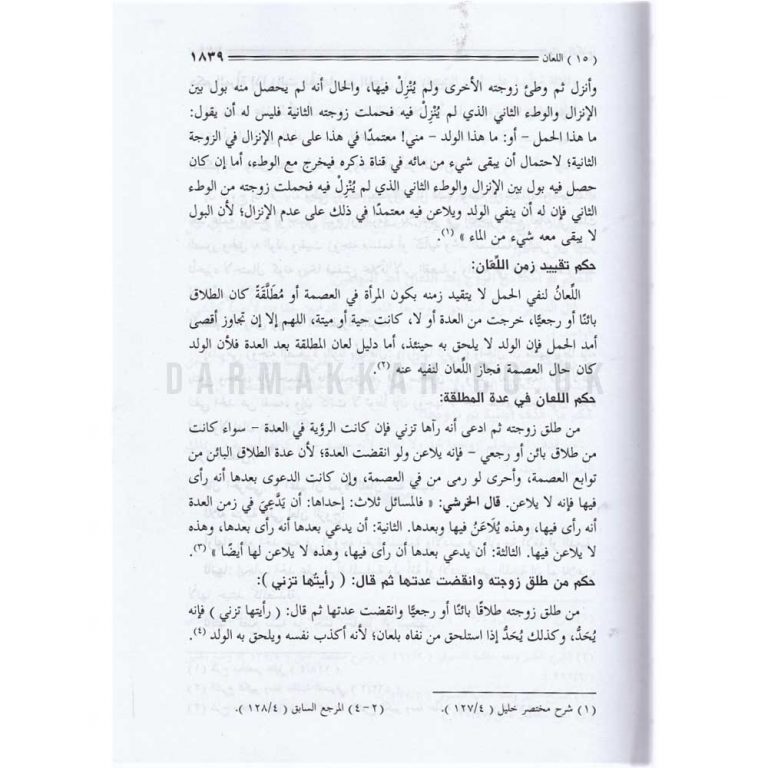 ( ١٥ ) اللعان ١٨٣٩
وأنزل ثم وطئ زوجته الأخرى ولم يُنْزِلْ فيها، والحال أنه لم يحصل منه بول بين
الإنزال والوطء الثاني الذي لم يُنْزِلْ فيه فحملت زوجته الثانية فليس له أن يقول:
ما هذا الحمل – أو: ما هذا الولد – مني! معتمدًا في هذا على عدم الإنزال في الزوجة
الثانية؛ لاحتمال أن يبقى شيء من مائه في قناة ذكره فيخرج مع الوطء، أما إن كان
حصل فيه بول بين الإنزال والوطء الثاني الذي لم يُنْزِلْ فيه فحملت زوجته من الوطء
الثاني فإن له أن ينفي الولد ويلاعن فيه معتمدًا في ذلك على عدم الإنزال؛ لأن البول
لا يبقى معه شيء من الماء » (١).
حكم تقييد زمن اللِّعَان:
اللِّعانُ لنفي الحمل لا يتقيد زمنه بكون المرأة في العصمة أو مُطَلَّقَةً كان الطلاق
بائنًا أو رجعيًّا، خرجت من العدة أو لا، كانت حية أو ميتة، اللهم إلا إن تجاوز أقصى
أمد الحمل فإن الولد لا يلحق به حينئذ، أما دليل لعان المطلقة بعد العدة فلأن الولد
كان حال العصمة فجاز اللِّعان لنفيه عنه (٢).
DARMAKKAH.CO.UK
حكم اللعان في عدة المطلقة:
من طلق زوجته ثم ادعى أنه رآها تزني فإن كانت الرؤية في العدة – سواء كانت
من طلاق بائن أو رجعي – فإنه يلاعن ولو انقضت العدة؛ لأن عدة الطلاق البائن من
توابع العصمة، وأحرى لو رمى من في العصمة، وإن كانت الدعوى بعدها أنه رأى
فيها فإنه لا يلاعن. قال الخرشي: « فالمسائل ثلاث: إحداها: أن يَدَّعِيَ في زمن العدة
أنه رأى فيها، وهذه يُلَاعَنُ فيها وبعدها. الثانية: أن يدعي بعدها أنه رأى بعدها، وهذه
لا يلاعن فيها. الثالثة: أن يدعي بعدها أن رأى فيها، وهذه لا يلاعن لها أيضًا » (٣).
حكم من طلق زوجته وانقضت عدتها ثم قال: ( رأيتُها تزني ):
من طلق زوجته طلاقا بائنًا أو رجعيًّا وانقضت عدتها ثم قال: ( رأيتها تزني ) فإنه
يُحَدُّ، وكذلك يُحَدُّ إذا استلحق من نفاه بلعان؛ لأنه أكذب نفسه ويلحق به الولد (٤).
(١) شرح مختصر خليل ( ١٢٧/٤ ). (٢-٤) المرجع السابق ( ١٢٨/٤ ).